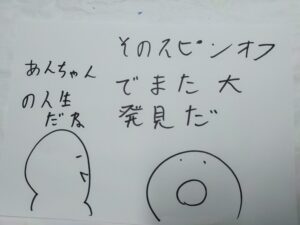 あんちゃん
の人生
だな
そのスピンオフ
でまた大
発見だ